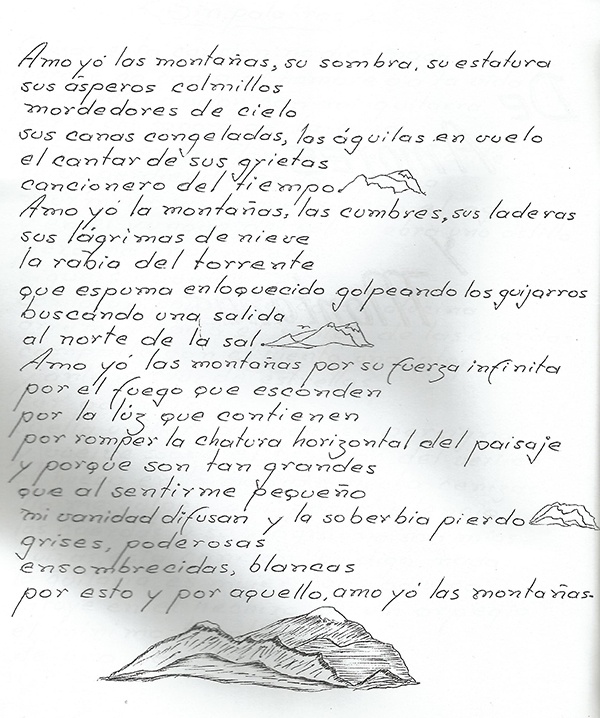 Amo yó las montañas, su sombra, su estatura
sus ásperos colmillos
mordedores de cielo
sus canas congeladas, las águilas en vuelo
el cantar de sus grietas
cancionero del tiempo.
Amo yó la montañas, las cumbres, sus laderas
sus lágrimas de nieve
la rabia del torrente
que espuma enloquecido golpeando los guijarros
buscando una salida
al norte de la sal.
Amo yó las montañas por su fuerza infinita
por el fuego que esconden
por la lúz que contienen
por romper la chatura horizontal del paisaje
y porque son tan grandes
que al sentirme pequeño
mi vanidad difusan y la soberbia pierdo
grises, poderosas
ensombrecidas, blancas
por esto y por aquello, amo yó las montañas.